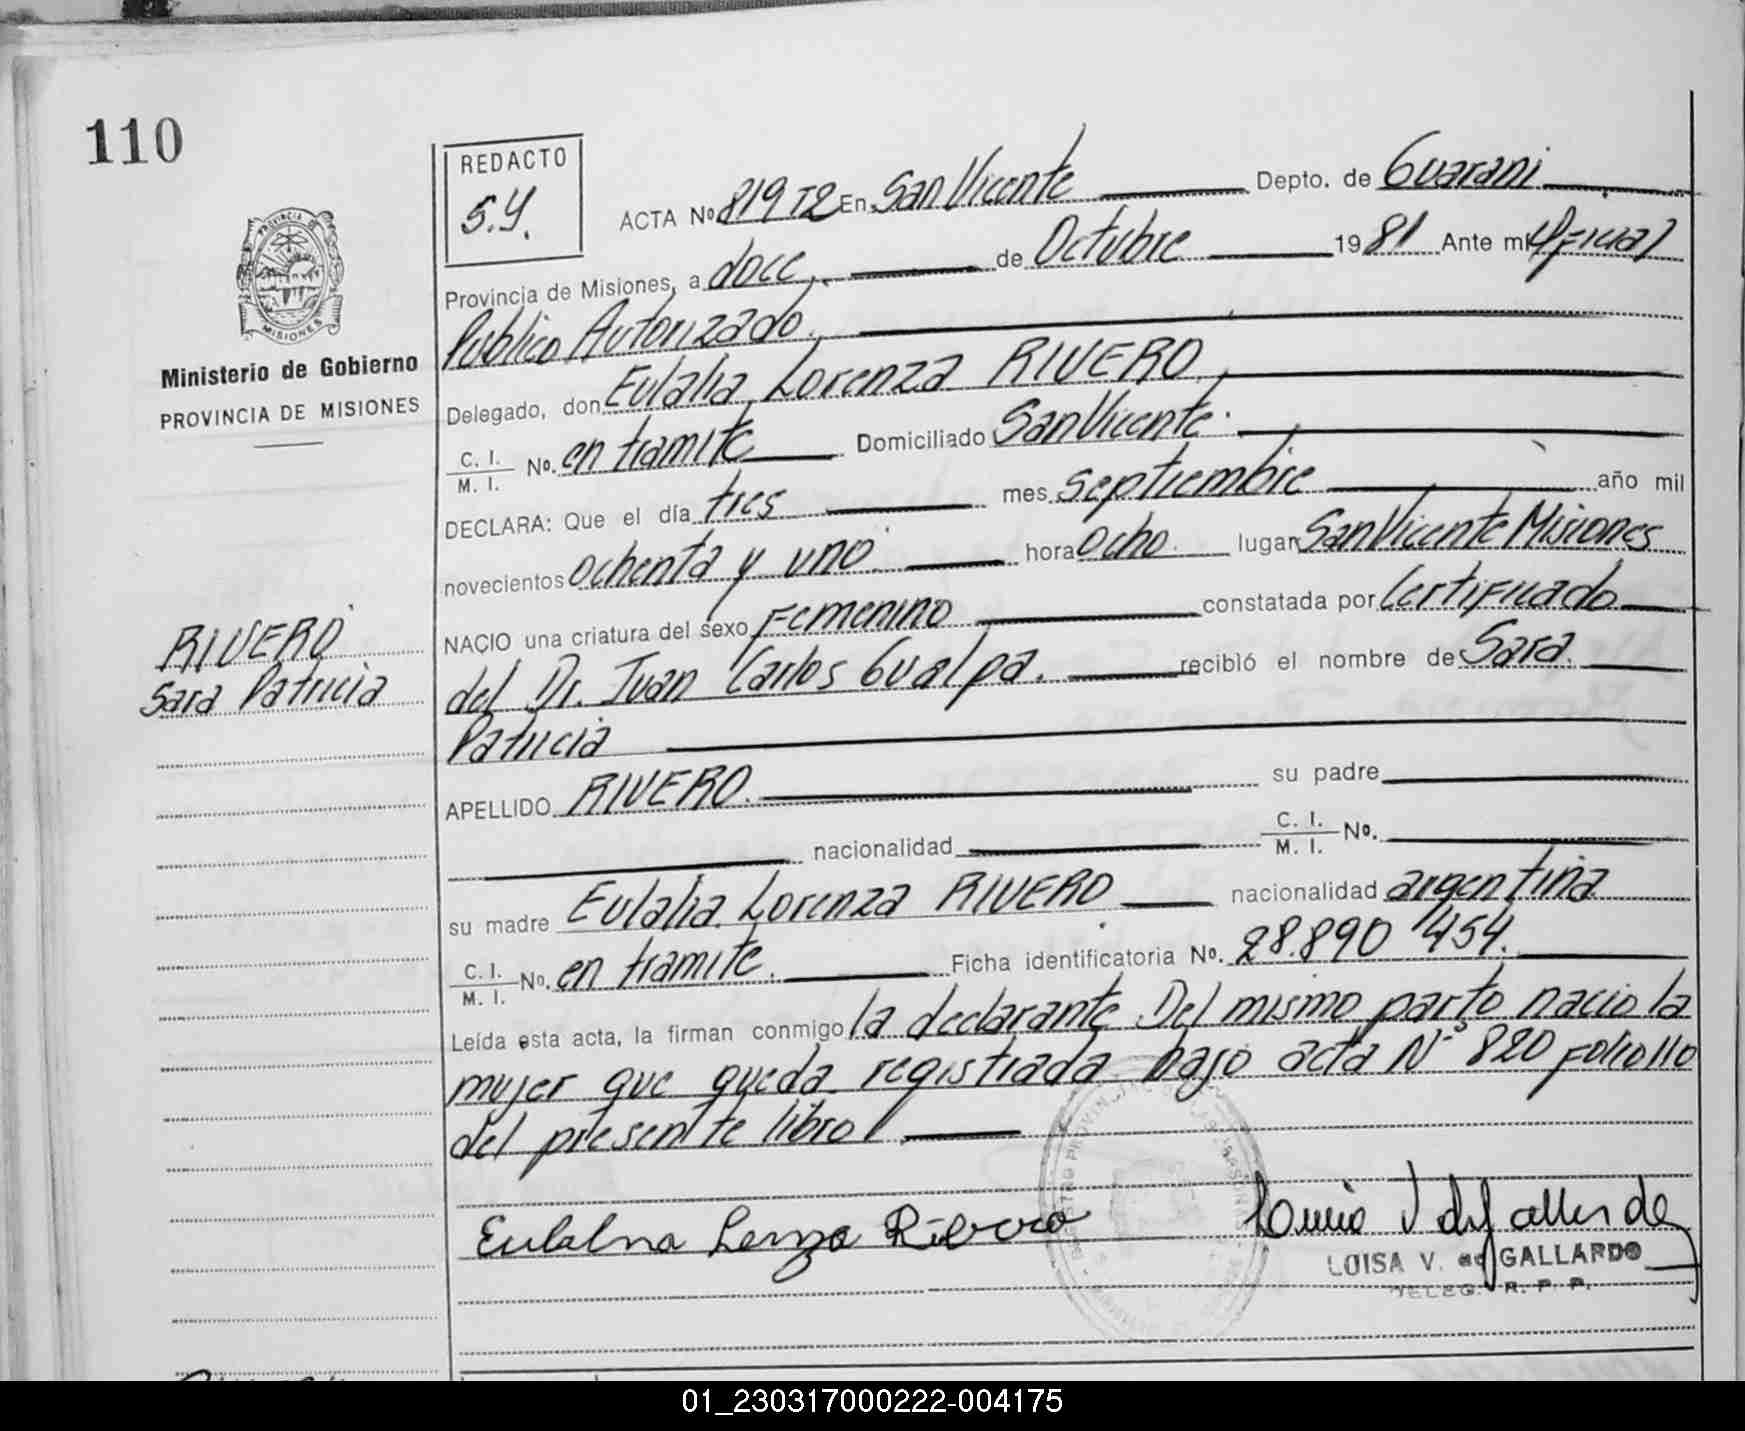 110
REDACTO
S.Y.
PROVINCIA DE
MISIONES
Ministerio de Gobierno
PROVINCIA DE MISIONES
ACTA No. 819 T2 En San Vicente Depto. de Guarani
Provincia de Misiones, a doce, de Octubre 1981 Ante mi Oficial
Publico Autorizado,
Delegado, don Eulalia Lorenza RIVERO,
C. I. / M. I. No. en tramite Domiciliado San Vicente.
DECLARA: Que el día tres mes septiembre año mil
novecientos ochenta y uno hora ocho. lugar San Vicente Misiones
NACIO una criatura del sexo Femenino constatada por Certificado
del Dr. Juan Carlos Gualpa. recibió el nombre de Sara
Patricia
RIVERO
Sara Patricia
APELLIDO RIVERO. su padre
nacionalidad C. I. / M. I. No.
su madre Eulalia Lorenza RIVERO nacionalidad argentina
C. I. / M. I. No. en tramite. Ficha identificatoria No. 28.890 454.
Leída esta acta, la firman conmigo la declarante. Del mismo parto nacio la
mujer que queda registrada bajo acta N° 820 folio 110
del presente libro
Eulalna Lenza Rivero
LOISA V. de GALLARDO
DELEG. R. P. P.
01_230317000222-004175